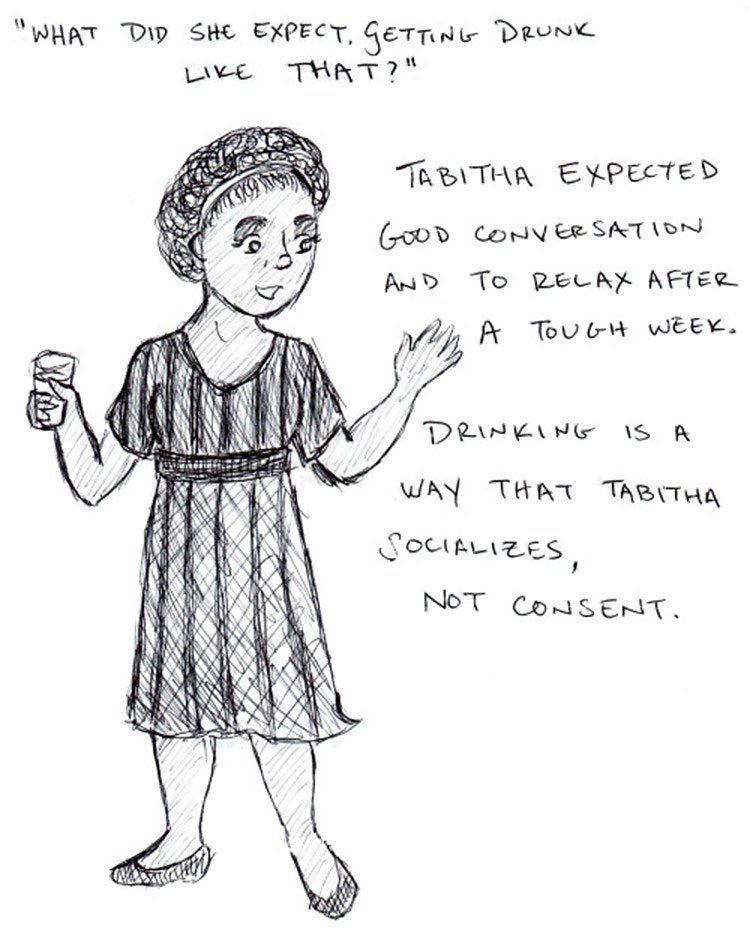 "WHAT DID SHE EXPECT, GETTING DRUNK
LIKE THAT?"
TABITHA EXPECTED
GOOD CONVERSATION
AND TO RELAX AFTER
A TOUGH WEEK.
DRINKING IS A
WAY THAT TABITHA
SOCIALIZES,
NOT CONSENT.